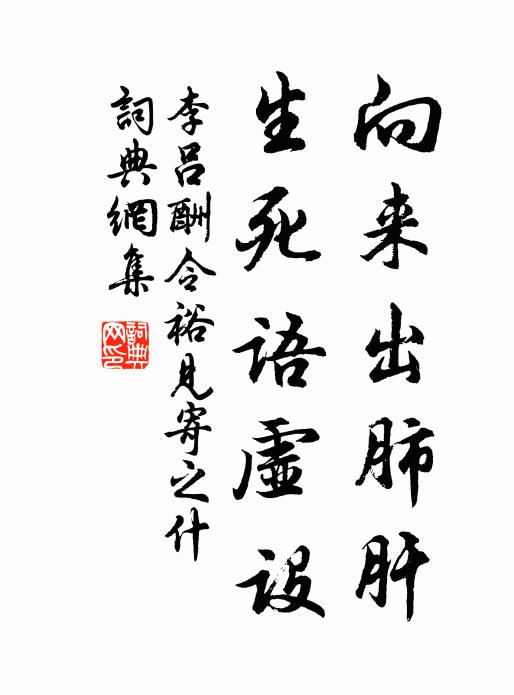 向来出肺肝
生死语虚设
李吕酬令裕见寄之什
词典網集
詞典網印